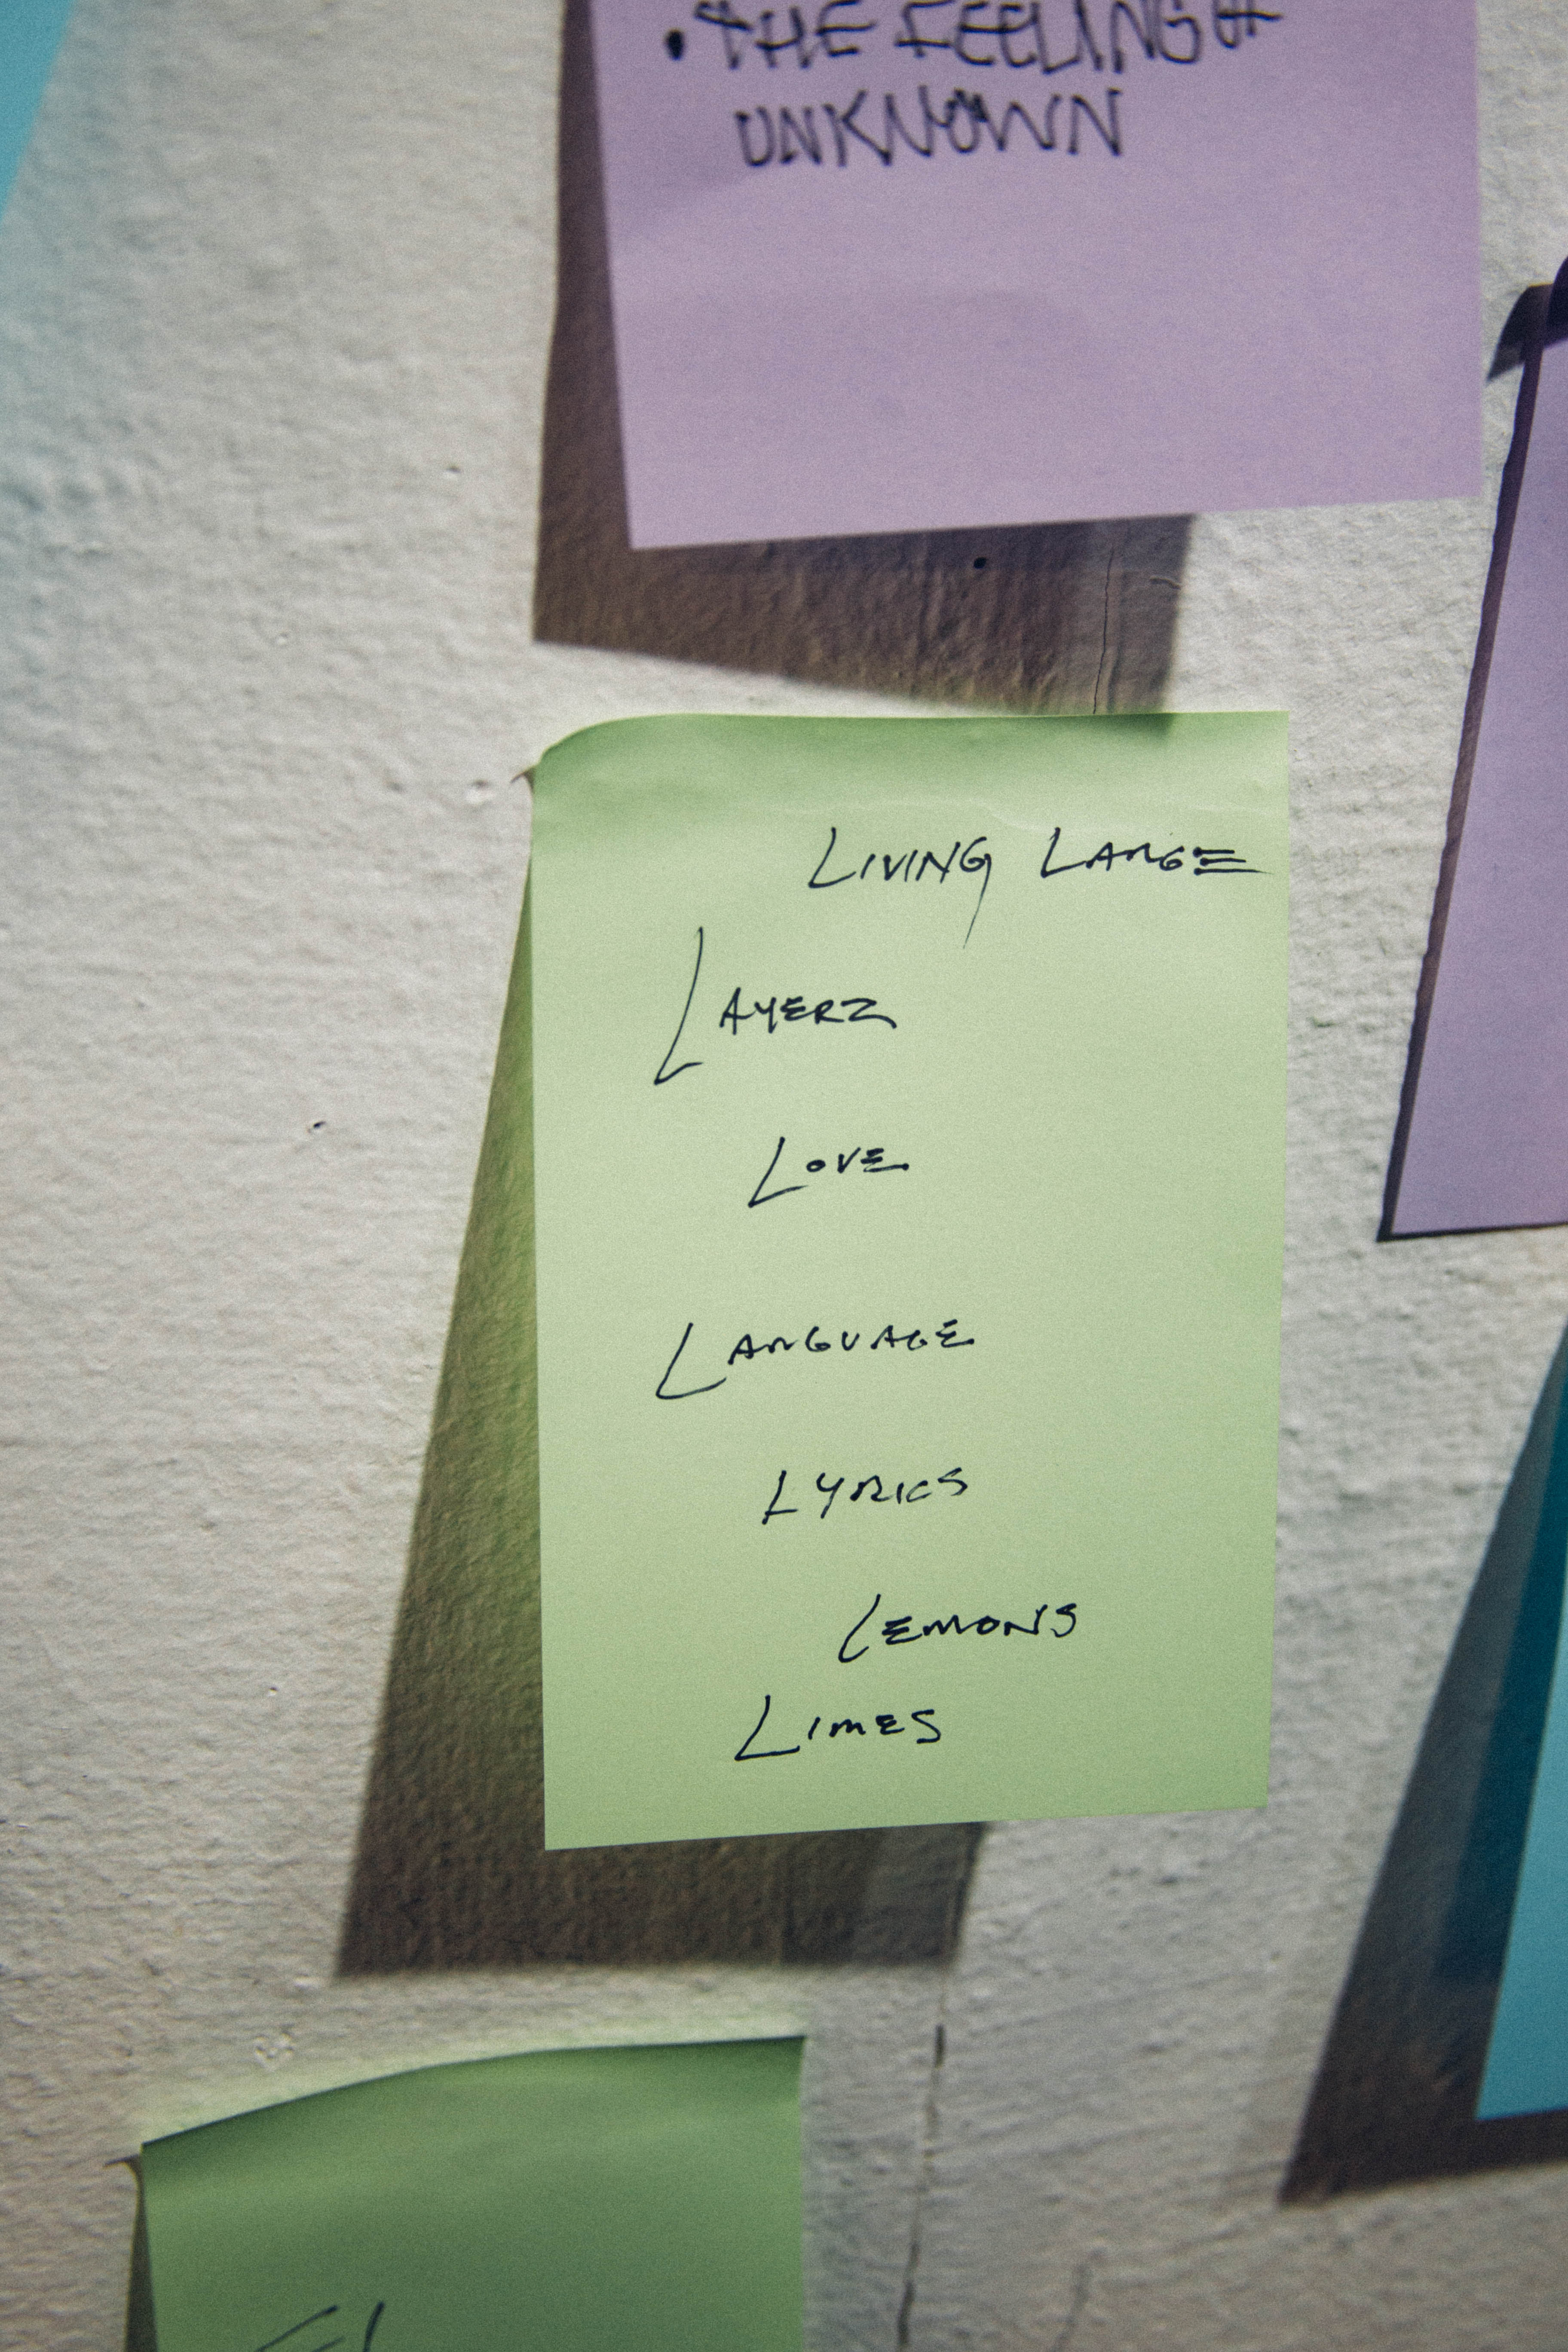 • THE FEELING OF
UNKNOWN
LIVING LARGE
LAYERZ
LOVE
LANGUAGE
LYRICS
LEMONS
LIMES